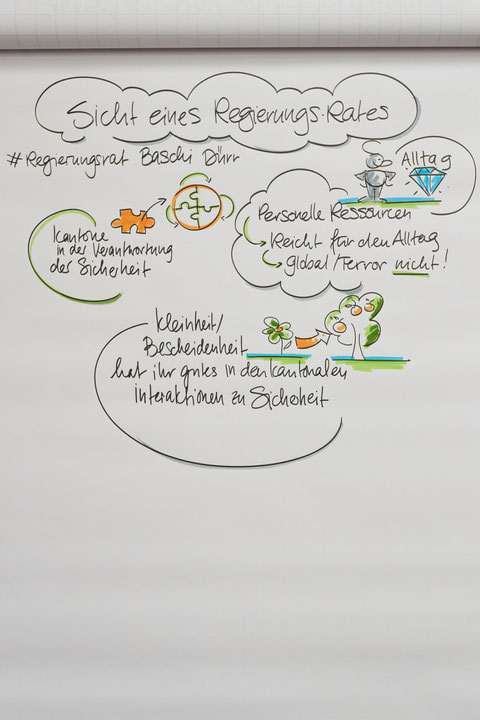 Sicht eines Regierungs-Rates
#Regierungsrat Baschi Dürr
Alltag
Personelle Ressourcen
Reicht für den Alltag
global/Terror nicht!
Kantone
in der Verantwortung
der Sicherheit
Kleinheit/
Bescheidenheit
hat ihr gutes in den kantonalen
interaktionen zu Sicherheit